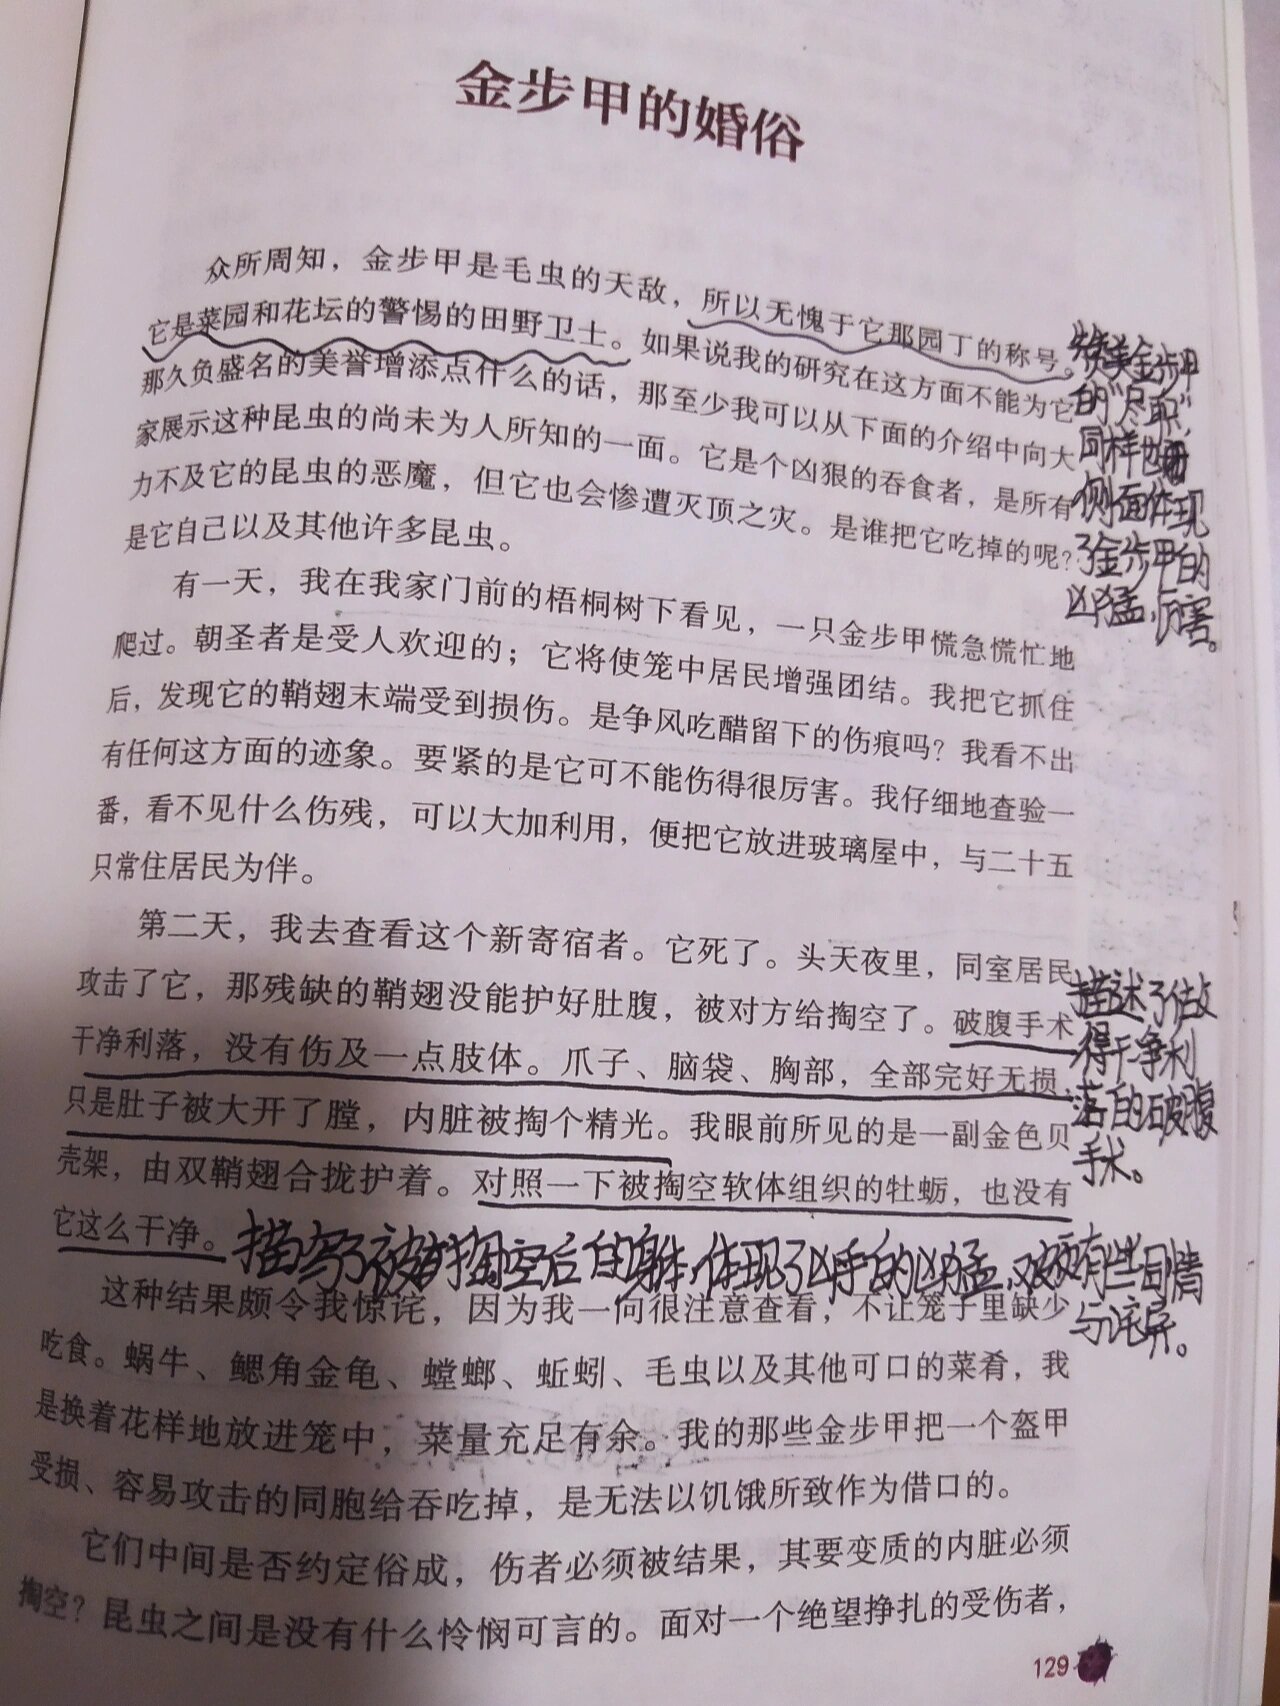 金步甲的婚俗
众所周知，金步甲是毛虫的天敌，所以无愧于它那园丁的称号。
它是菜园和花坛的警惕的田野卫士。如果说我的研究在这方面不能为它
那久负盛名的美誉增添点什么的话，那至少我可以从下面的介绍中向大
家展示这种昆虫的尚未为人所知的一面。它是个凶狠的吞食者，是所有
力不及它的昆虫的恶魔，但它也会惨遭灭顶之灾。是谁把它吃掉的呢？
是它自己以及其他许多昆虫。
赞美金步甲
的“尽职”，
同样也
侧面体现
了金步甲的
凶猛，厉害。
有一天，我在我家门前的梧桐树下看见，一只金步甲慌急慌忙地
爬过。朝圣者是受人欢迎的；它将使笼中居民增强团结。我把它抓住
后，发现它的鞘翅末端受到损伤。是争风吃醋留下的伤痕吗？我看不出
有任何这方面的迹象。要紧的是它可不能伤得很厉害。我仔细地查验一
番，看不见什么伤残，可以大加利用，便把它放进玻璃屋中，与二十五
只常住居民为伴。
第二天，我去查看这个新寄宿者。它死了。头天夜里，同室居民
攻击了它，那残缺的鞘翅没能护好肚腹，被对方给掏空了。破腹手术
干净利落，没有伤及一点肢体。爪子、脑袋、胸部，全部完好无损，
只是肚子被大开了膛，内脏被掏个精光。我眼前所见的是一副金色贝
壳架，由双鞘翅合拢护着。对照一下被掏空软体组织的牡蛎，也没有
它这么干净。
描述了做
得干净利
落的破腹
手术。
描写了被掏空后的身体，体现了凶手的凶猛，有些同情
与诧异。
这种结果颇令我惊诧，因为我一向很注意查看，不让笼子里缺少
吃食。蜗牛、鳃角金龟、螳螂、蚯蚓、毛虫以及其他可口的菜肴，我
是换着花样地放进笼中，菜量充足有余。我的那些金步甲把一个盔甲
受损、容易攻击的同胞给吞吃掉，是无法以饥饿所致作为借口的。
它们中间是否约定俗成，伤者必须被结果，其要变质的内脏必须
掏空？昆虫之间是没有什么怜悯可言的。面对一个绝望挣扎的受伤者，
129